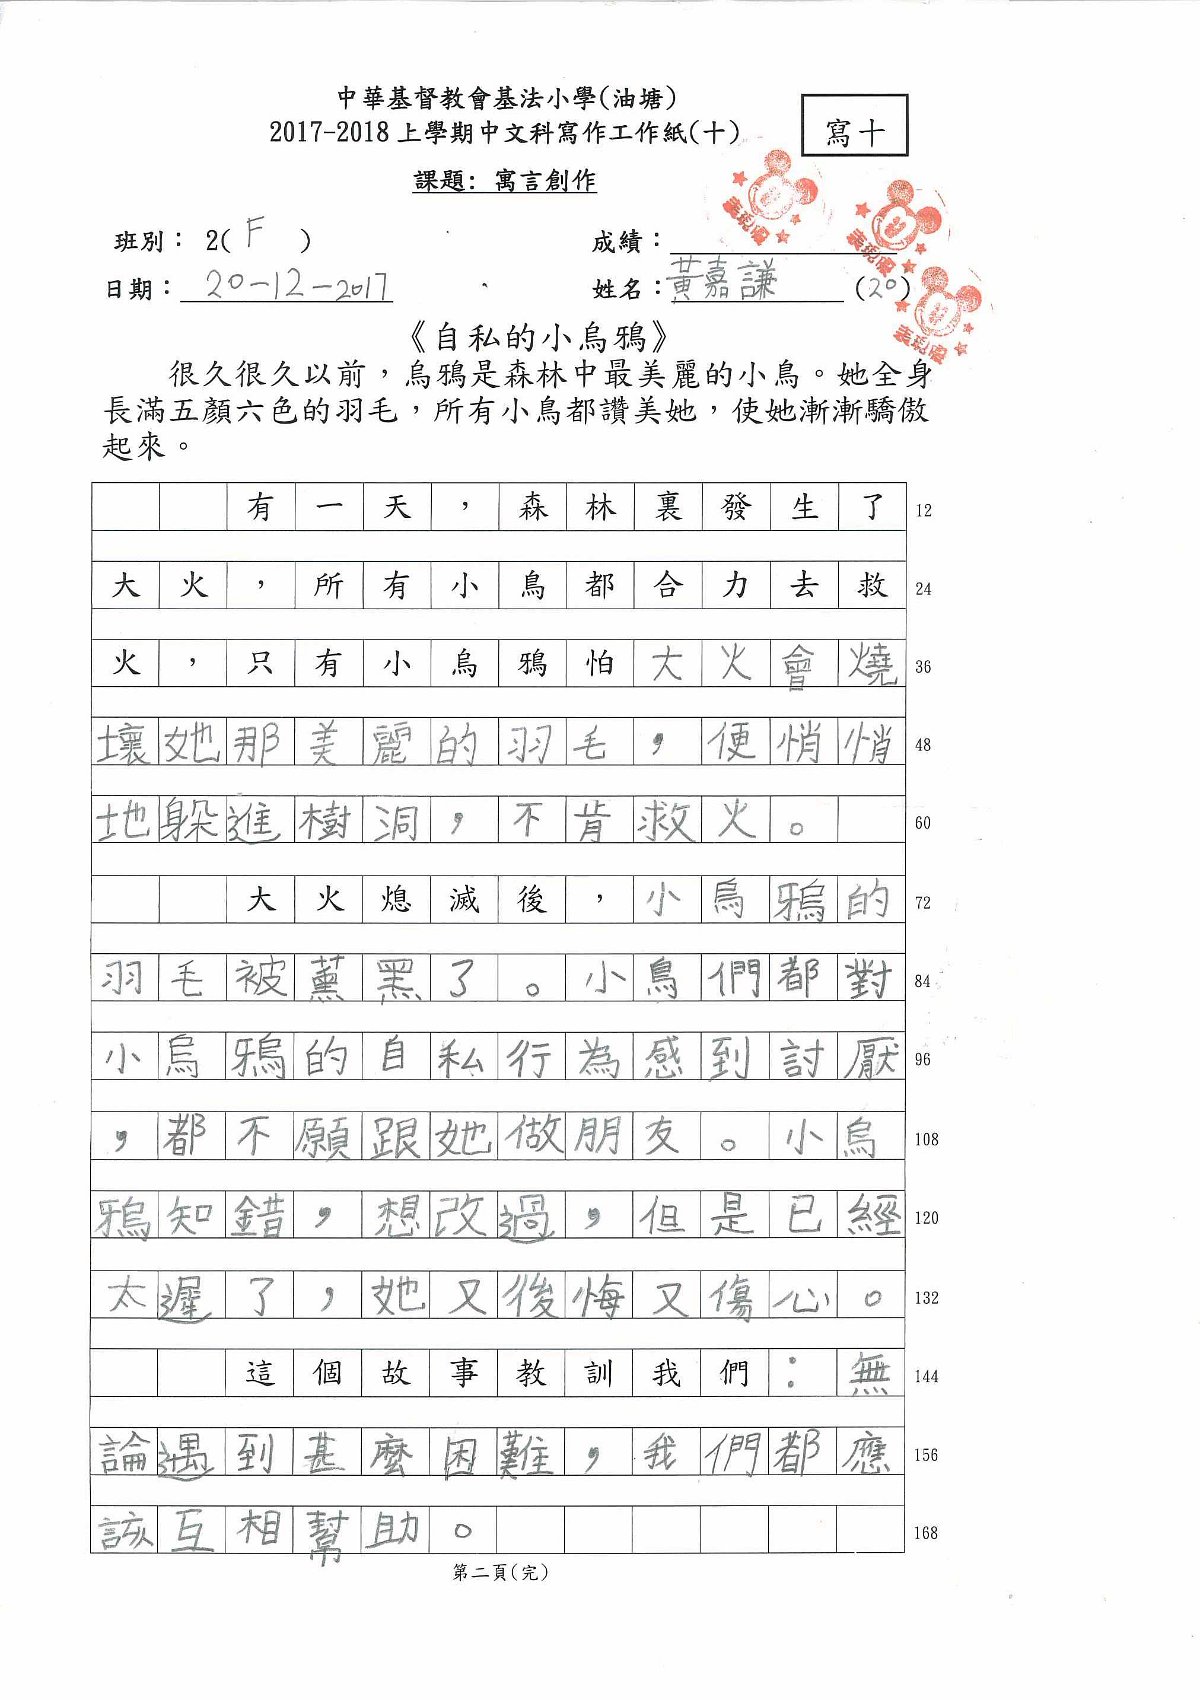 中華基督教會基法小學(油塘)
2017-2018上學期中文科寫作工作紙(十)
寫十
課題: 寓言創作
班別： 2( F )
成績：
日期： 20-12-2017
姓名：黃嘉謙 (20)
表現優
表現優
表現優
《自私的小烏鴉》
很久很久以前，烏鴉是森林中最美麗的小鳥。她全身
長滿五顏六色的羽毛，所有小鳥都讚美她，使她漸漸驕傲
起來。
有一天，森林裏發生了 12
大火，所有小鳥都合力去救 24
火，只有小烏鴉怕大火會燒 36
壞她那美麗的羽毛，便悄悄 48
地躲進樹洞，不肯救火。 60
大火熄滅後，小烏鴉的 72
羽毛被薰黑了。小鳥們都對 84
小烏鴉的自私行為感到討厭 96
，都不願跟她做朋友。小烏 108
鴉知錯，想改過，但是已經 120
太遲了，她又後悔又傷心。 132
這個故事教訓我們：無 144
論遇到甚麼困難，我們都應 156
該互相幫助。 168
第二頁(完)